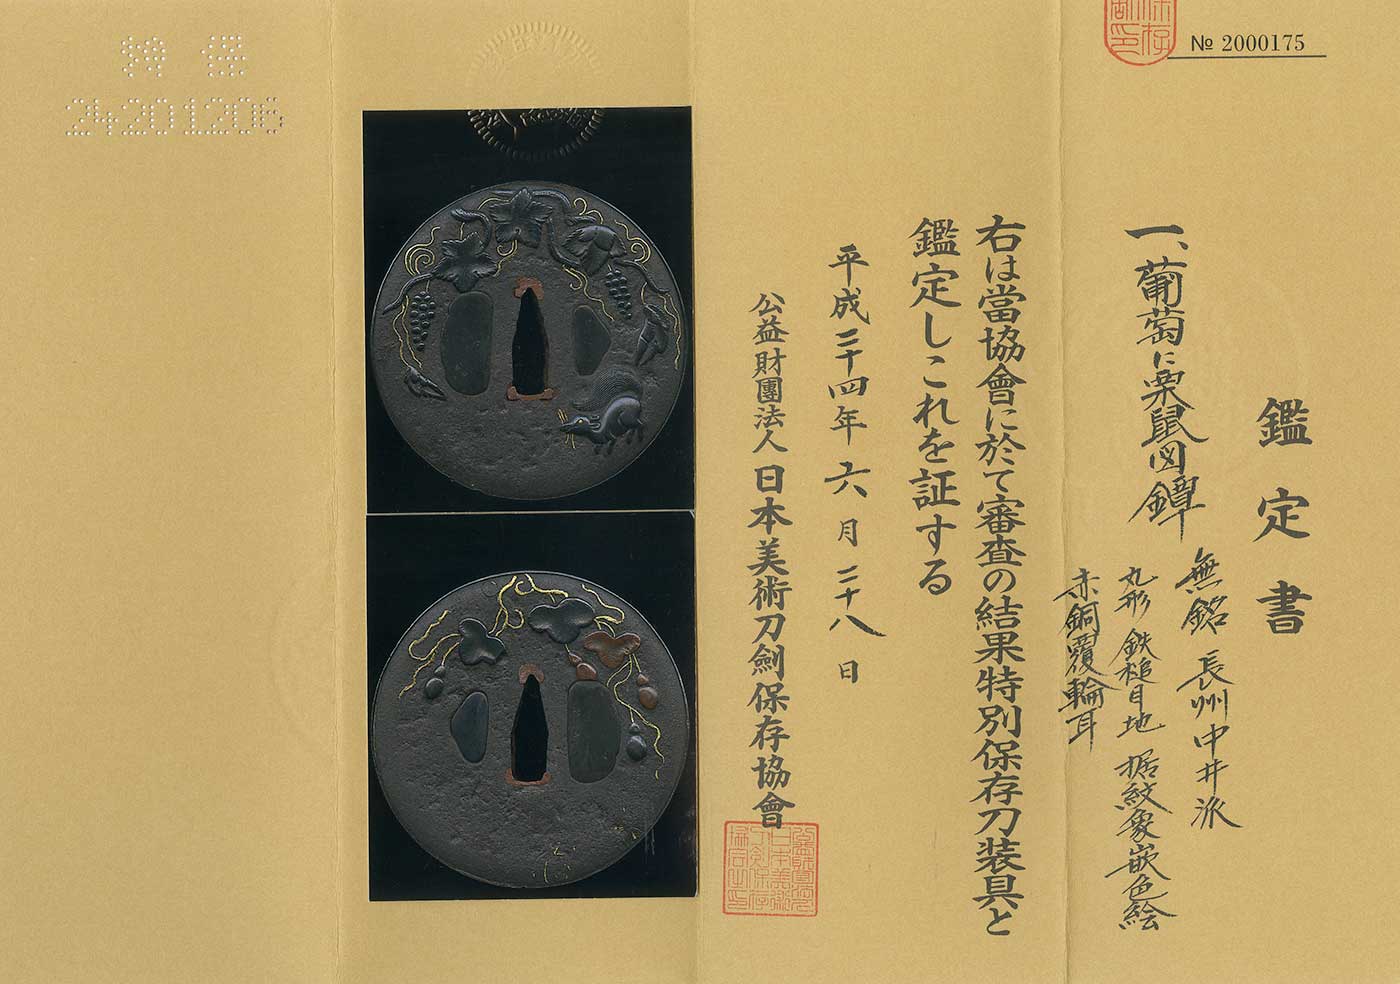 № 2000175
鑑定書
一、葡萄に栗鼠図鐔
無銘 長州中井派
丸形 鉄槌目地 据紋象嵌色絵
赤銅覆輪耳
右は當協會に於て審査の結果特別保存刀装具と
鑑定しこれを証する
平成二十四年六月二十八日
公益財團法人 日本美術刀劍保存協會
特 保
24201206